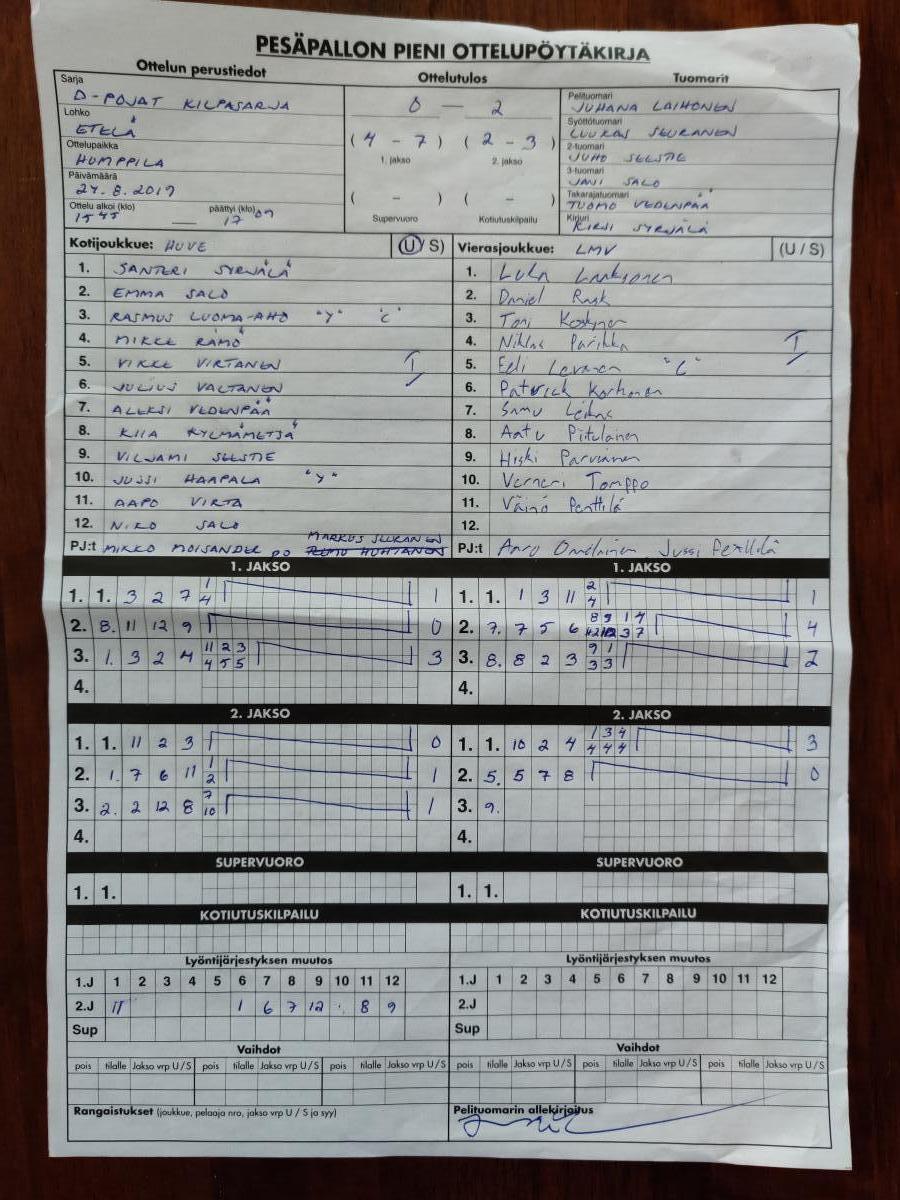 PESÄPALLON PIENI OTTELUPÖYTÄKIRJA
Ottelun perustiedot Ottelutulos Tuomarit
Sarja
D-POJAT KILPASARJA
Lohko
ETELÄ
Ottelupaikka
HUMPPILA
Päivämäärä
24.8.2019
Ottelu alkoi (klo) päättyi (klo)
15 45 — 17 09
0 — 2
( 4 - 7 ) ( 2 - 3 )
1. jakso 2. jakso
( - ) ( - )
Supervuoro Kotiutuskilpailu
Pelituomari
JUHANA LAIHONEN
Syöttötuomari
LUUKAS SEURANEN
2-tuomari
JUHO SEESTIE
3-tuomari
JANI SALO
Takarajatuomari
TUOMO VEDENPÄÄ
Kirjuri
KIRSI SYRJÄLÄ
Kotijoukkue: HUVE (U / S)
1. SANTERI SYRJÄLÄ
2. EMMA SALO
3. RASMUS LUOMA-AHO "Y" C
4. MIKKE RÄMÖ
5. VIKKE VIRTANEN I
6. JULIUS VALTANEN
7. ALEKSI VEDENPÄÄ
8. KIIA KYLMÄMETSÄ
9. VILJAMI SEESTIE
10. JUSSI HAAPALA "Y"
11. AAPO VIRTA
12. NIKO SALO
MARKUS SEURANEN
PJ:t MIKKO MOISANDER PO
Vierasjoukkue: LMV (U / S)
1. Luka Laaksonen
2. Daniel Rask
3. Toni
4. Niklas Parikka I
5. Eeli Levanen "C"
6. Patrick Korhonen
7. Samu
8. Aatu Piitulainen
9. Hiski Parviainen
10. Verneri Tomppo
11. Väinö Penttilä
12.
PJ:t Jussi Penttilä
1. JAKSO
1. 1. 3 2 7 1 1
4
2. 8. 11 12 9 0
3. 1. 3 2 4 11 2 3 3
4 5 5
4.
2. JAKSO
1. 1. 11 2 3 0
2. 1. 7 6 11 1 1
2
3. 2. 2 12 8 7 1
10
4.
SUPERVUORO
1. 1.
KOTIUTUSKILPAILU
Lyöntijärjestyksen muutos
1.J 1 2 3 4 5 6 7 8 9 10 11 12
2.J 11 1 6 7 12 8 9
Sup
Vaihdot
pois tilalle Jakso vrp U/S pois tilalle Jakso vrp U/S pois tilalle Jakso vrp U/S
Rangaistukset (joukkue, pelaaja nro, jakso vrp U / S ja syy)
1. JAKSO
1. 1. 1 3 11 2 1
4
2. 7. 7 5 6 8 9 1 4 4
3 7
3. 8. 8 2 3 9 1 2
3 3
4.
2. JAKSO
1. 1. 10 2 4 1 3 4 3
4 4 4
2. 5. 5 7 8 0
3. 9.
4.
SUPERVUORO
1. 1.
KOTIUTUSKILPAILU
Lyöntijärjestyksen muutos
1.J 1 2 3 4 5 6 7 8 9 10 11 12
2.J
Sup
Vaihdot
pois tilalle Jakso vrp U/S pois tilalle Jakso vrp U/S pois tilalle Jakso vrp U/S
Pelituomarin allekirjoitus